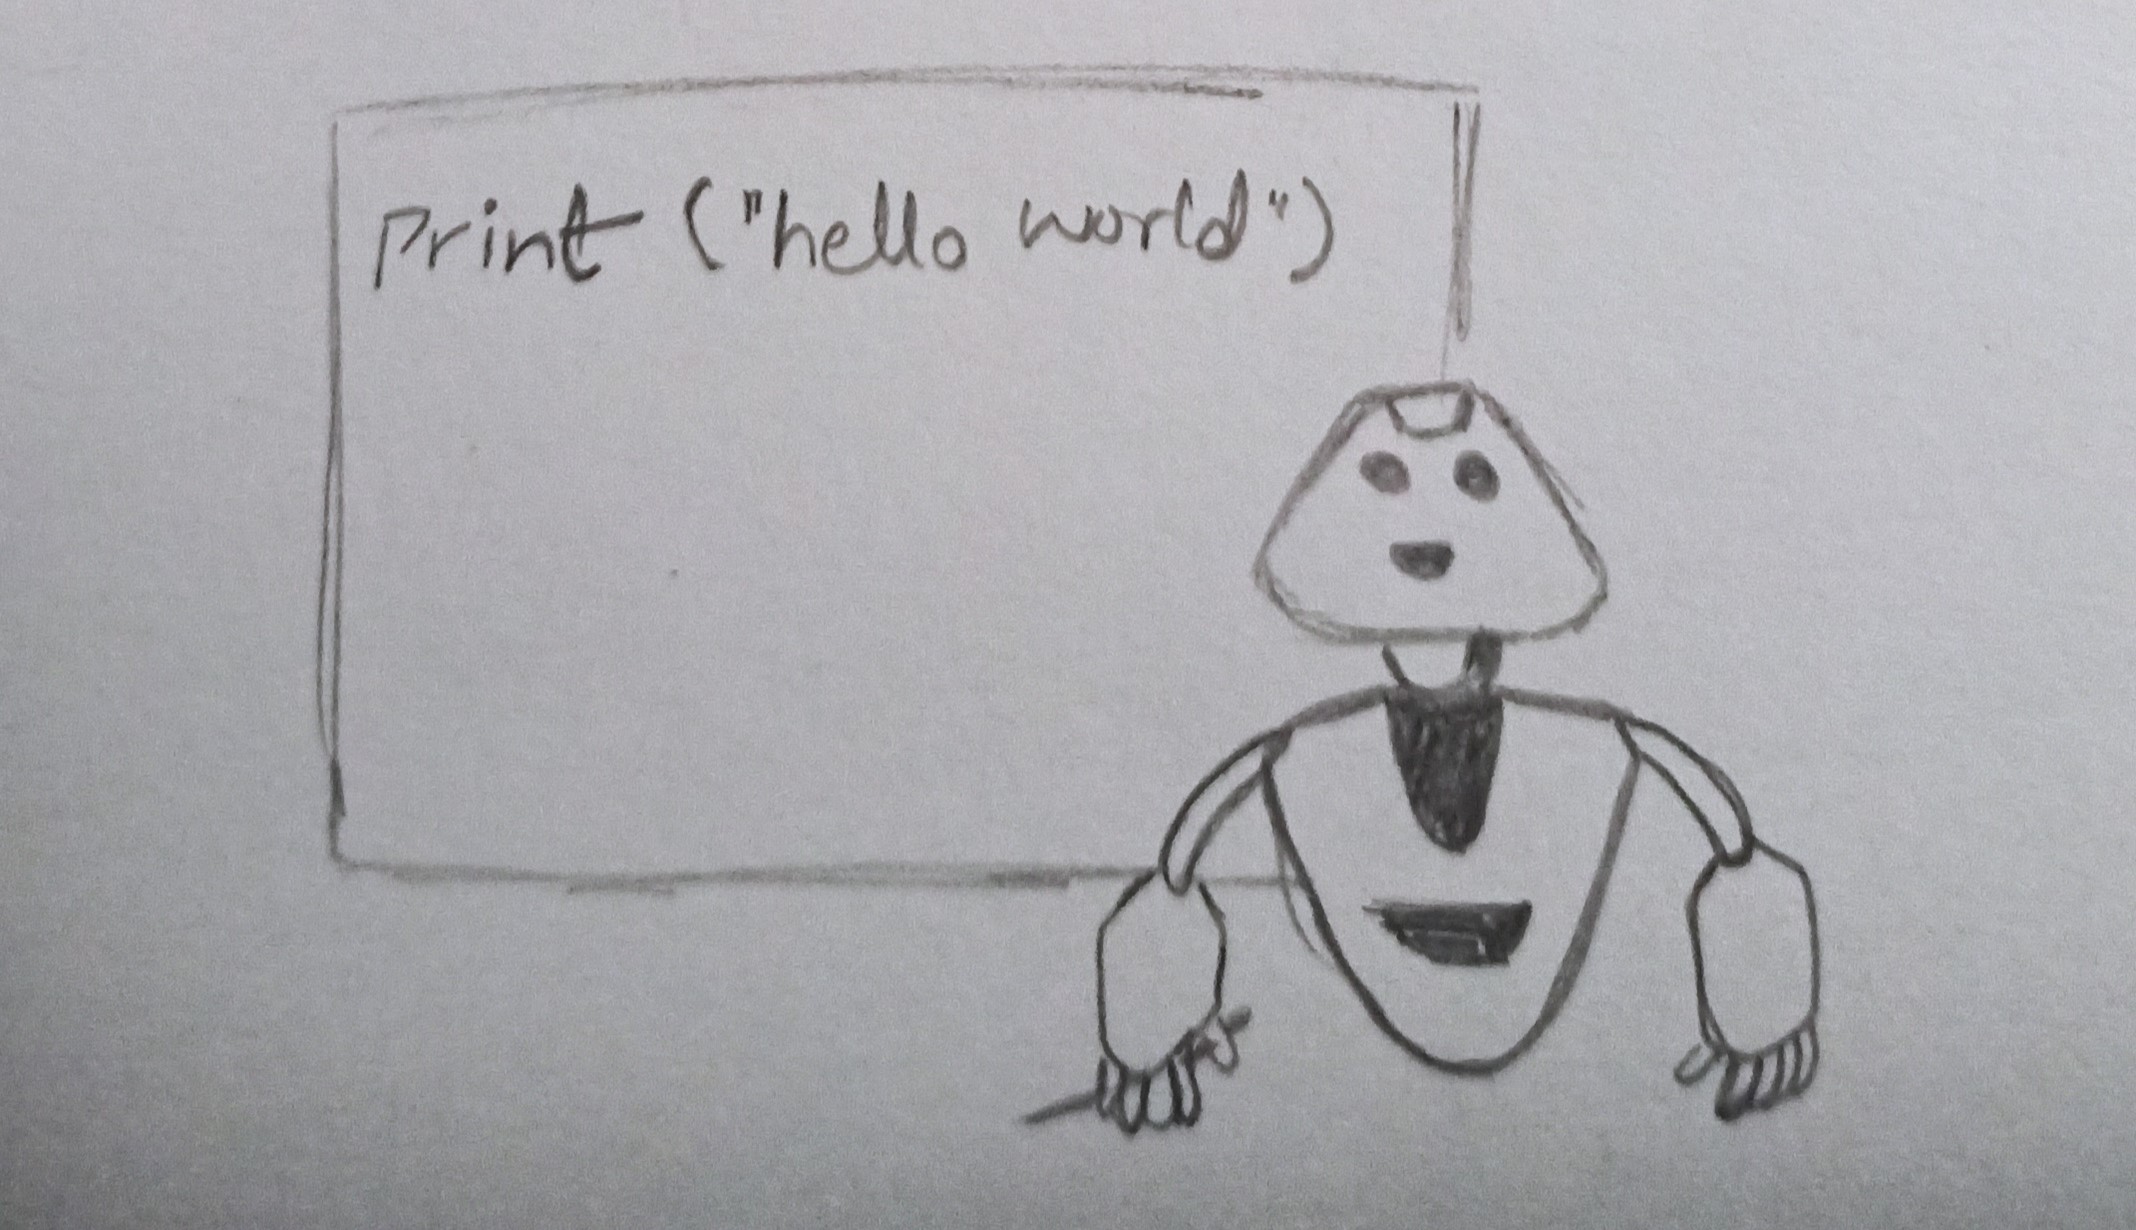 Print ("hello world")